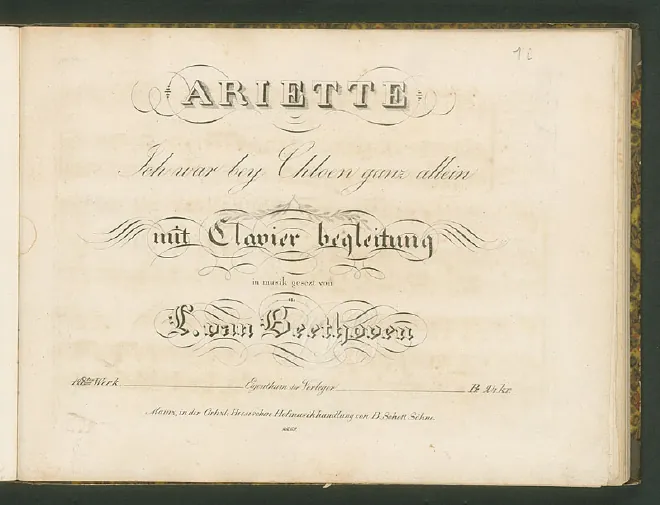 ARIETTE
Ich war bey Chloen ganz allein
mit Clavier begleitung
in musik gesezt von
L. van Beethoven
Werk Eigenthum der Verleger
Mainz, in der Hofmusikhandlung von B. Schott Söhne.